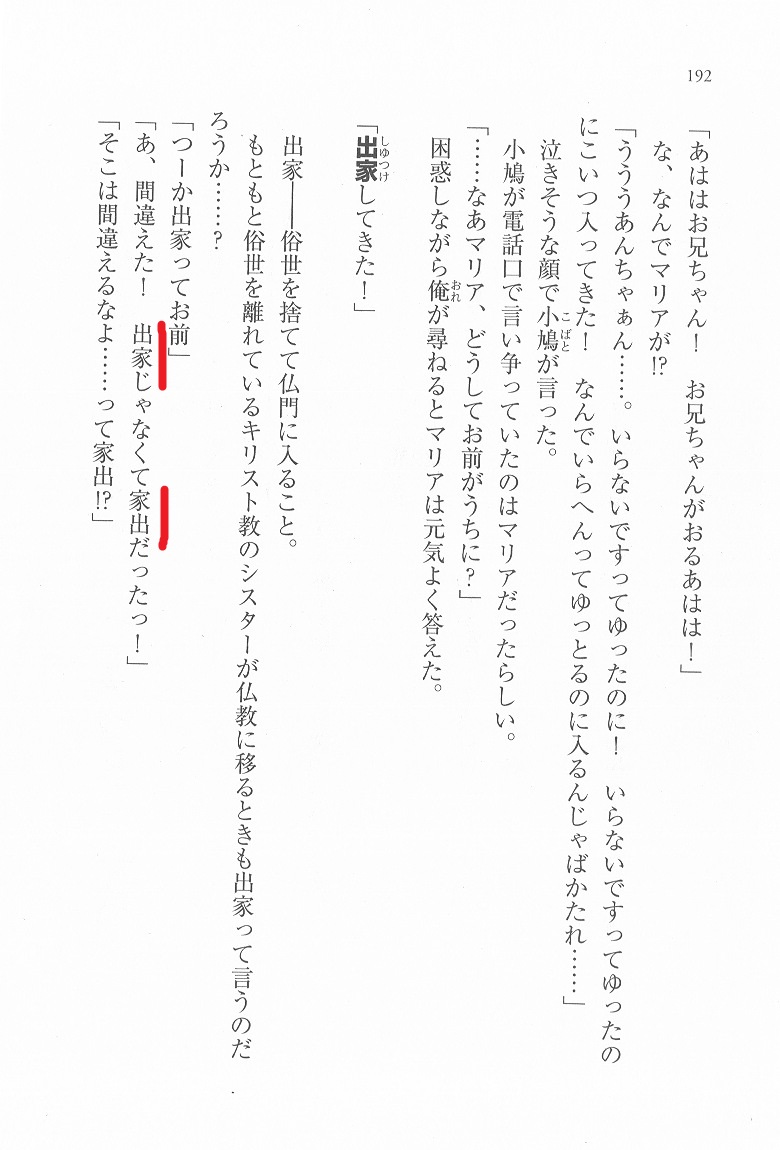 192
「あははお兄ちゃん！　お兄ちゃんがおるあはは！」
な、なんでマリアが!?
「うううあんちゃぁん……。いらないですってゆったのに！　いらないですってゆったの
にこいつ入ってきた！　なんでいらへんってゆっとるのに入るんじゃばかたれ……」
泣きそうな顔で小鳩が言った。
こばと
小鳩が電話口で言い争っていたのはマリアだったらしい。
「……なあマリア、どうしてお前がうちに？」
困惑しながら俺が尋ねるとマリアは元気よく答えた。
おれ
「出家してきた！」
しゆつけ
出家――俗世を捨てて仏門に入ること。
もともと俗世を離れているキリスト教のシスターが仏教に移るときも出家って言うのだ
ろうか……？
「つーか出家ってお前」
「あ、間違えた！　出家じゃなくて家出だったっ！」
「そこは間違えるなよ……って家出!?」